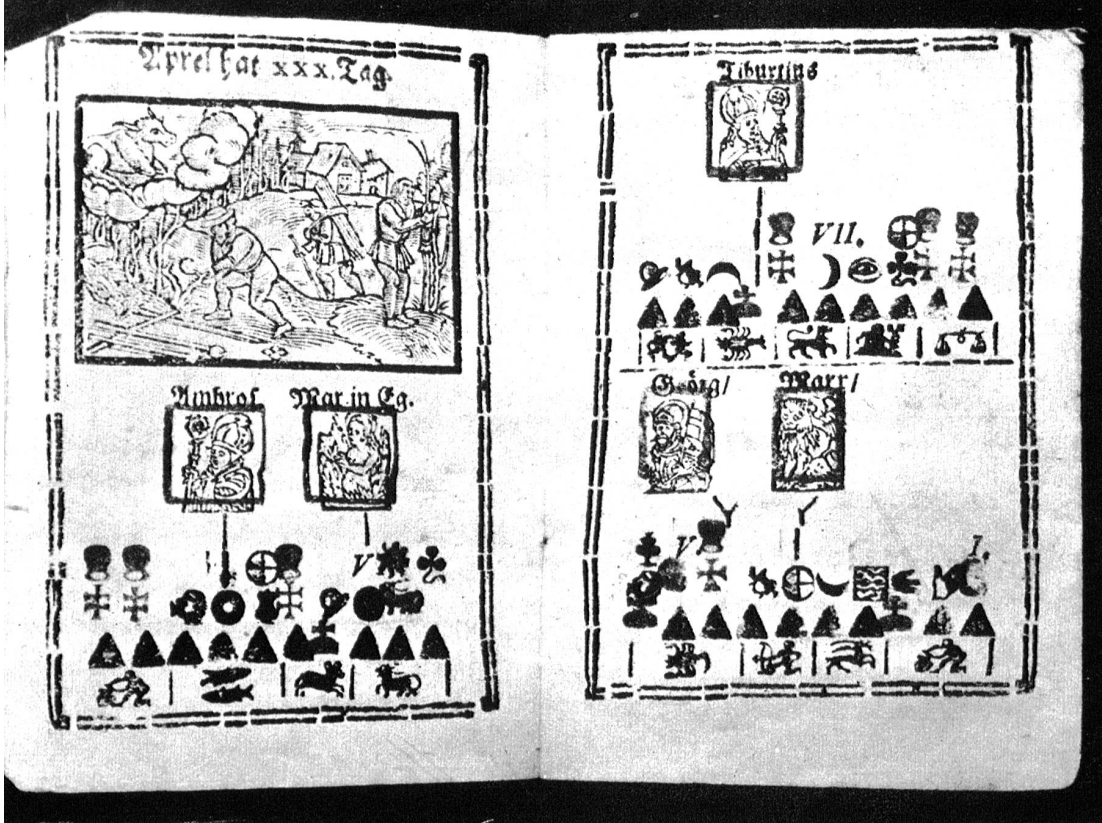 Aprel hat xxx. Tag.
Ambros Mar. in Eg.
V
Tiburtius
VII.
Geörg/ Marx/
V
I.